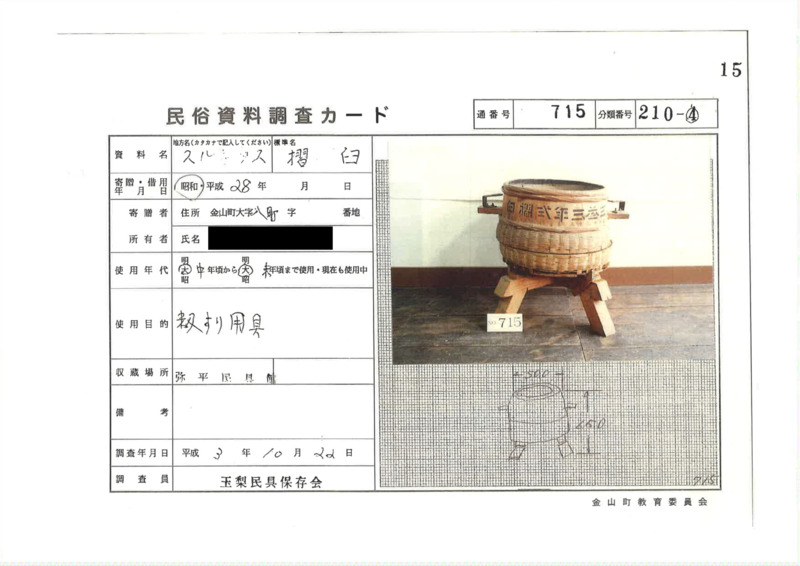 15
民俗資料調査カード
通番号 715 分類番号 210-④
資料名 地方名(カタカナで記入してください) スル ス 標準名 摺臼
寄贈・借用年月日 昭和・平成 28年 月 日
寄贈者 住所 金山町大字八町字 番地
所有者 氏名
使用年代 明大昭 中年頃から 明大昭 末年頃まで使用・現在も使用中
使用目的 籾すり用具
収蔵場所 弥平民具館
備考
調査年月日 平成 3年 10月 22日
調査員 玉梨民具保存会
715
500
715
金山町教育委員会